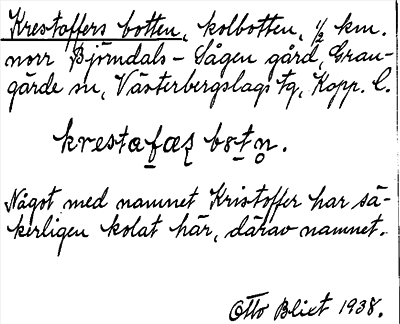 Krestoffers botten, kolbotten, ½ km.
norr Björndals-Sågen gård, Gran-
gärde sn, Västerbergslags tg, Kopp. l.
krestafæʂ bɞtn̥.
Något med namnet Kristoffer har sä-
kerligen kolat här, därav namnet.
Otto Blixt 1938.